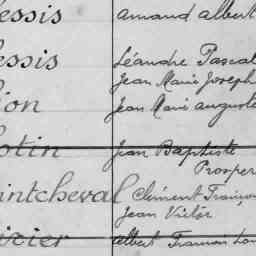 essis Armand Albert
essis Léandre Pascal
Jean Marie Joseph
ion Jean Marie Auguste
otin Jean Baptiste
Prosper
intcheval Clément François
Jean Victor
Albert François